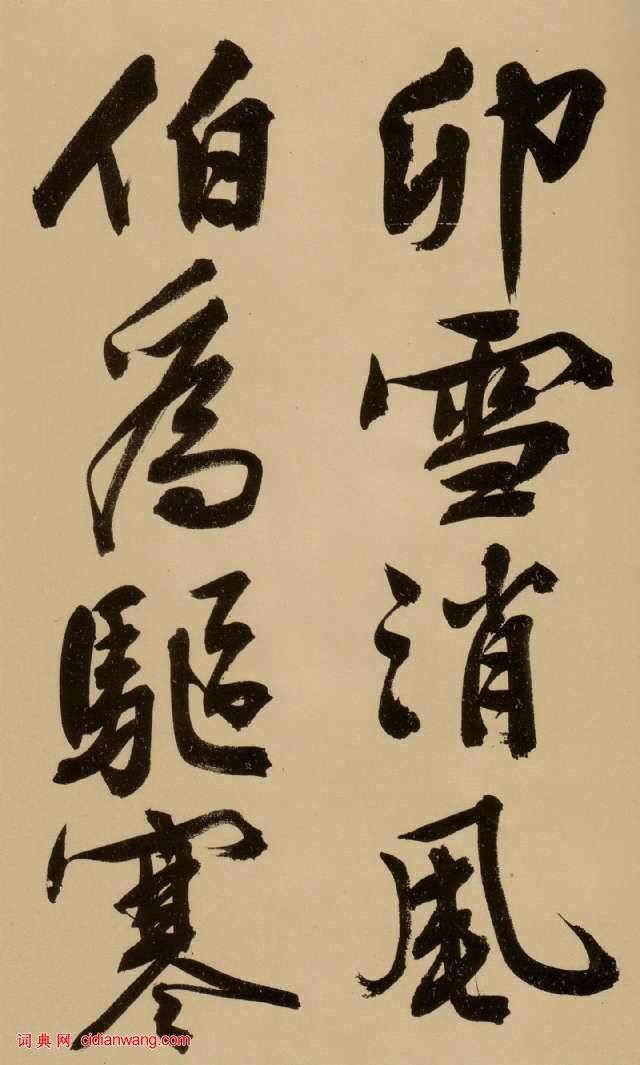 卯雪消風
伯為驅寒
词典网 cidianwang.com